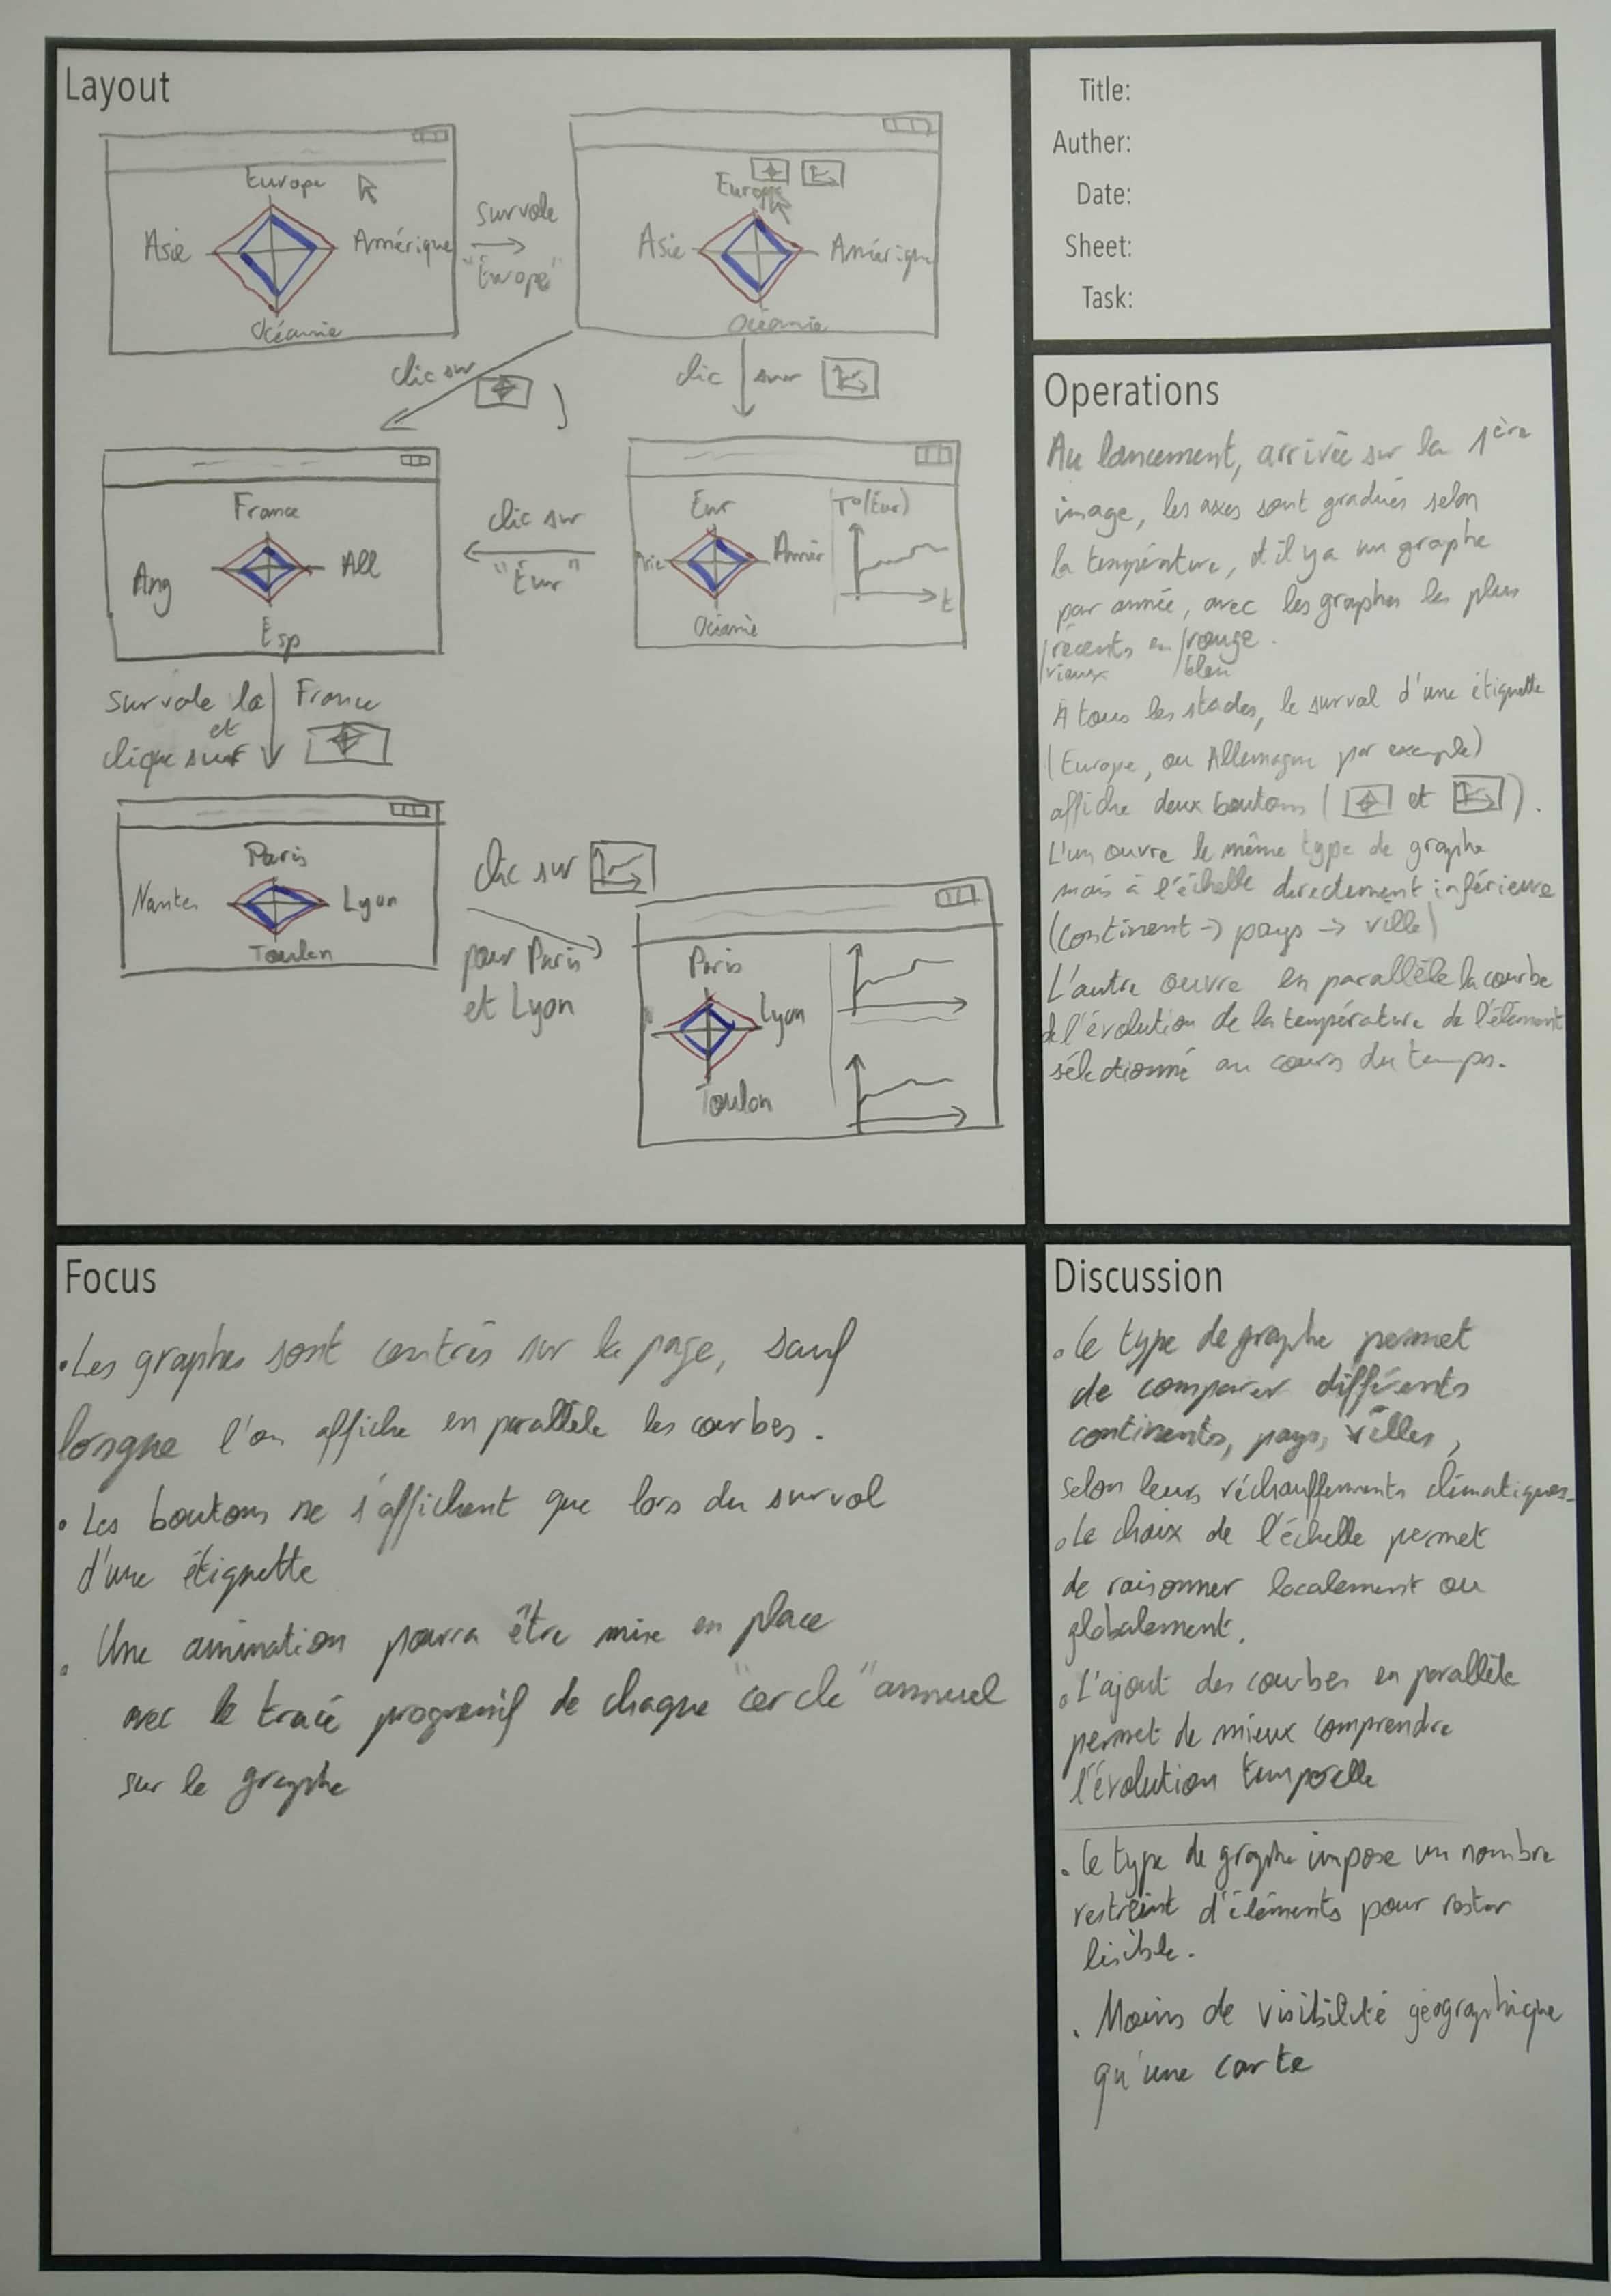 Layout
Europe
Asie
Amérique
Océanie
survole
"Europe"
Europe
Asie
Amérique
Océanie
clic sur
clic sur
France
Ang
All
Esp
clic sur
"Eur"
Eur
Asie
Amér
Océanie
T°(Eur)
t
survole la France
et
clique sur
Paris
Nantes
Lyon
Toulon
clic sur
pour Paris
et Lyon
Paris
Lyon
Toulon
Title:
Auther:
Date:
Sheet:
Task:
Operations
Au lancement, arrivée sur la 1ère
image, les axes sont gradués selon
la température, et il y a un graphe
par année, avec les graphes les plus
/récents en /rouge.
/vieux /bleu
À tous les stades, le survol d'une étiquette
(Europe, ou Allemagne par exemple)
affiche deux boutons ( et ).
L'un ouvre le même type de graphe
mais à l'échelle directement inférieure
(continent -> pays -> ville)
L'autre ouvre en parallèle la courbe
de l'évolution de la température de l'élément
sélectionné au cours du temps.
Focus
• Les graphes sont centrés sur la page, sauf
lorsque l'on affiche en parallèle les courbes.
• Les boutons ne s'affichent que lors du survol
d'une étiquette
• Une animation pourra être mise en place
avec le tracé progressif de chaque "cercle" annuel
sur le graphe
Discussion
• Ce type de graphe permet
de comparer différents
continents, pays, villes,
selon leurs réchauffements climatiques.
• Le choix de l'échelle permet
de raisonner localement ou
globalement.
• L'ajout des courbes en parallèle
permet de mieux comprendre
l'évolution temporelle
• Ce type de graphe impose un nombre
restreint d'éléments pour rester
lisible.
• Moins de visibilité géographique
qu'une carte